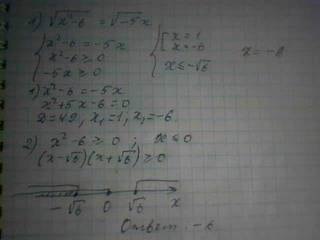 1) √(x²-6) = √(-5x)
{ x²-6 = -5x
x²-6 ≥ 0
-5x ≥ 0
{ [ x = 1
x = -6
x ≤ -√6
x = -6
1) x²-6 = -5x
x²+5x-6 = 0
D = 49, x₁ = 1; x₂ = -6
2) x²-6 ≥ 0 ; x ≤ 0
(x-√6)(x+√6) ≥ 0
-√6 0 √6 x
Ответ. -6